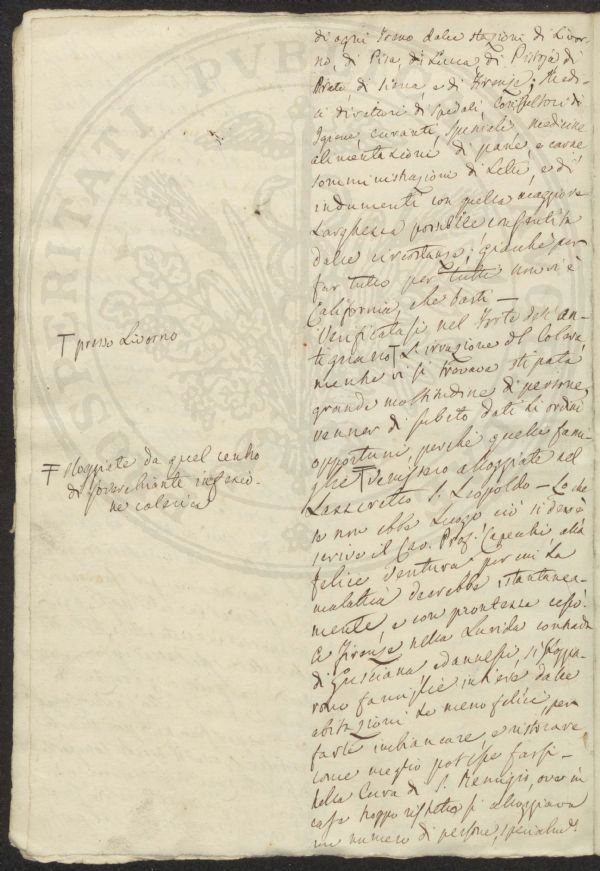 di ogni Treno dalle stazioni di Livor-
no, di Pisa, di Lucca, di Pistoja di
Prato, di Signa, e di Firenze; Medi-
ci direttori di Spedali, Consultori di
Igiene, curanti, speziali, medicine
alimentazioni di pane, e carne
somministrazioni di Letti, e di
indumenti con quella maggiore
Larghezza possibile consentita
dalle circostanze; giacchè per
far tutto per tutti non vi è
California, che basti —
Verificatasi nel Forte dell'An-
tignano Ŧ L'invazione del Colera,
mentre vi si trovava stipata
grande moltitudine di persone
vennero di subito dati li ordini
opportuni, perchè quelle fami-
glie Ŧ venissero alloggiate nel
Lazzeretto S. Leopoldo — Lo che
se non ebbe Luogo ciò si deve
scrive il Cav. Prof. Capecchi alla
felice Ventura per cui La
malattia decrebbe istantanea-
mente, e con prontezza cessò.
A Firenze nella Lurida contrada
di Gusciana ed annessi, si sloggia-
rono famiglie intiere dalle
abitazioni Le meno felici, per
farle imbiancare, e ristorare
come meglio potesse farsi —
Nella Cura di S. Remigio, ove in
case troppo ristrette si alloggiava
un numero di persone,
Ŧ presso Livorno
Ŧ sloggiate da quel centro
di soverchiante infezio-
ne colerica